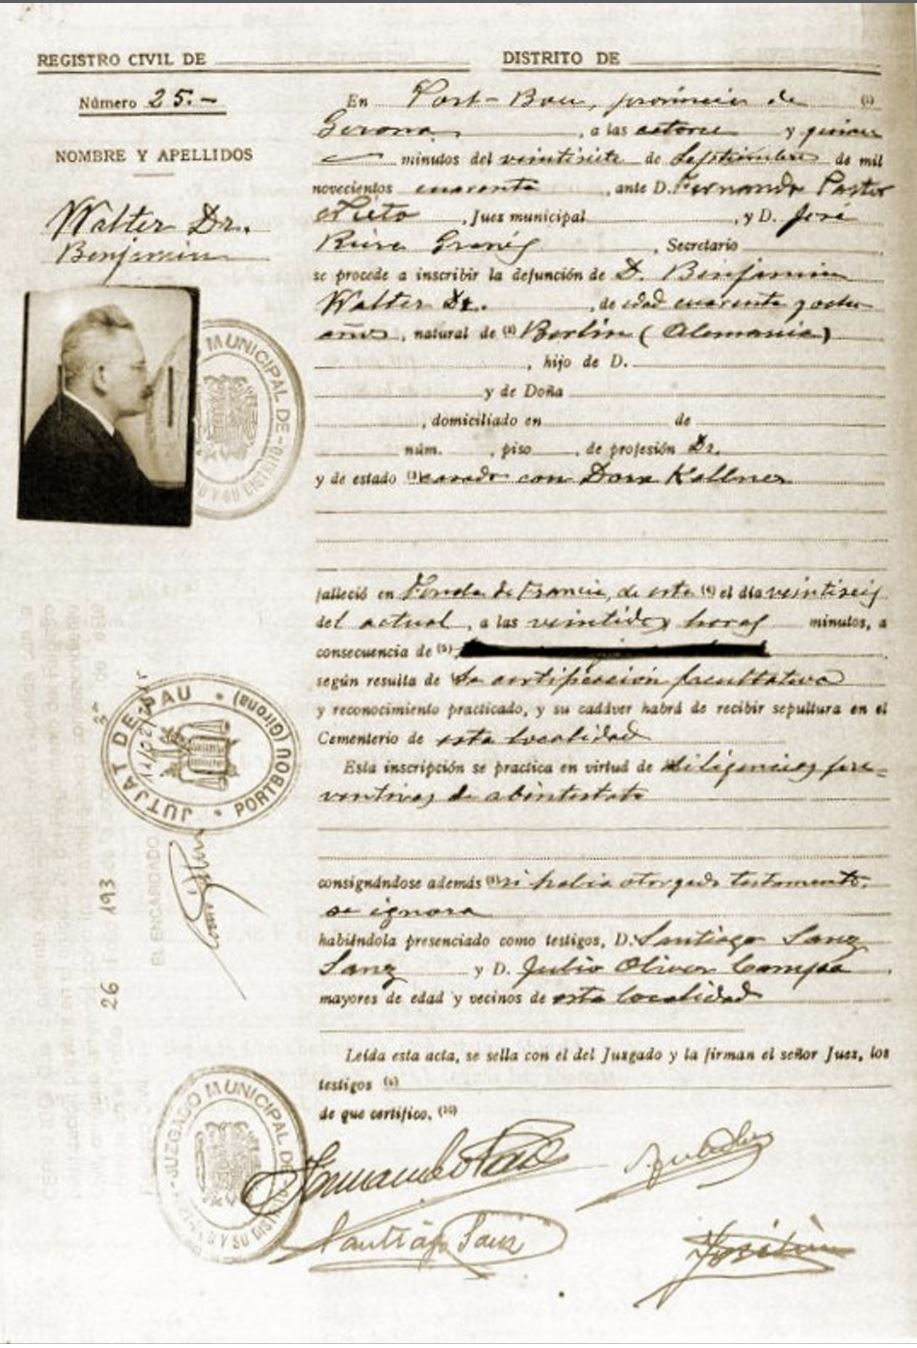 REGISTRO CIVIL DE
DISTRITO DE
Número 25.-
NOMBRE Y APELLIDOS
Walter Dr.
Benjamin
En Port-Bou, provincia de (1)
Gerona, a las catorce y quince
minutos del veintisiete de Septiembre de mil
novecientos cuarenta, ante D. Fernando Pastor
Nieto, Juez municipal, y D. José
Riera Granés, Secretario
se procede a inscribir la defunción de D. Benjamin
Walter Dr., de edad cuarenta y ocho
años, natural de (2) Berlin (Alemania)
, hijo de D.
y de Doña
, domiciliado en de
núm. , piso , de profesión Dr.
y de estado (3) casado con Dora Kellner
falleció en Fonda de Francia, de esta (4) el día veintiseis
del actual, a las veintidos horas minutos, a
consecuencia de (5)
según resulta de la certificación facultativa
y reconocimiento practicado, y su cadáver habrá de recibir sepultura en el
Cementerio de esta localidad
Esta inscripción se practica en virtud de diligencias pre-
ventivas de abintestato
consignándose además si habia otorgado testamento,
se ignora
habiéndola presenciado como testigos, D. Santiago Sanz
Sanz y D. Julio Oliver Campà
mayores de edad y vecinos de esta localidad
Leída esta acta, se sella con el del Juzgado y la firman el señor Juez, los
testigos
de que certifico. (10)
MUNICIPAL DE
Y SU DISTRITO
JUTJAT DE PAU • PORTBOU (Girona) •
EL ENCARGADO
26
193
JUZGADO MUNICIPAL DE
Y SU DISTRITO
Santiago Sanz